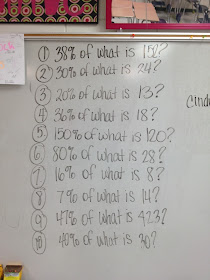 ① 38% of what is 152?
② 30% of what is 24?
③ 20% of what is 13?
④ 36% of what is 18?
⑤ 150% of what is 120?
⑥ 80% of what is 28?
⑦ 16% of what is 8?
⑧ 7% of what is 14?
⑨ 47% of what is 423?
⑩ 40% of what is 30?